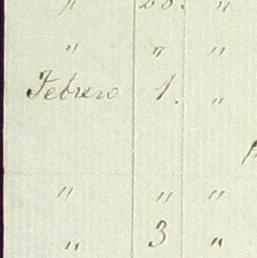 " 28. "
" " "
Febrero 1. "
" " "
" 3 "